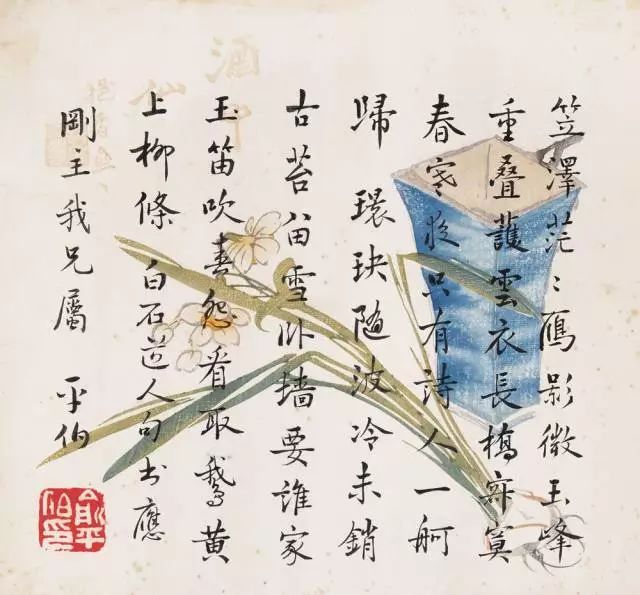 笠澤茫〻鴈影微玉峰
重疊護雲衣長橋寂寞
春寒夜只有詩人一舸
歸 環玦随波冷未銷
古苔留雪卧墙要誰家
玉笛吹春怨看取鵞黄
上柳條 白石道人句书應
剛主我兄屬 平伯
俞平伯印
酒中仙